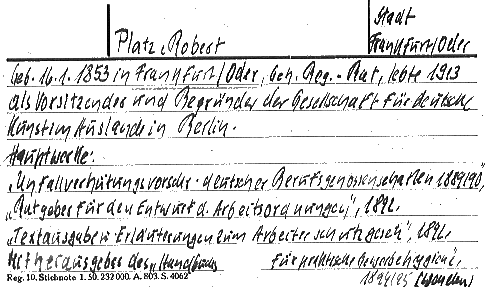 Stadt
Platz, Robert Frankfurt/Oder
geb. 16.1.1853 in Frankfurt/Oder, Geh. Reg.-Rat, lebte 1913
als Vorsitzender und Begründer der Gesellschaft für deutsche
Kunst im Auslande in Berlin.
Hauptwerke:
„Unfallverhütungsvorschr. deutscher Berufsgenossenschaften 1889/90",
„Ratgeber für den Entwurf d. Arbeitsordnungen", 1892,
„Textausgabe u. Erläuterungen zum Arbeiterschutzgesetz", 1892,
Mitherausgeber des „Handbuch für praktische Gewerbehygiene",
Reg. 10. Stichnote 1. 50. 232000. A. 803. S. 4062 1894/95